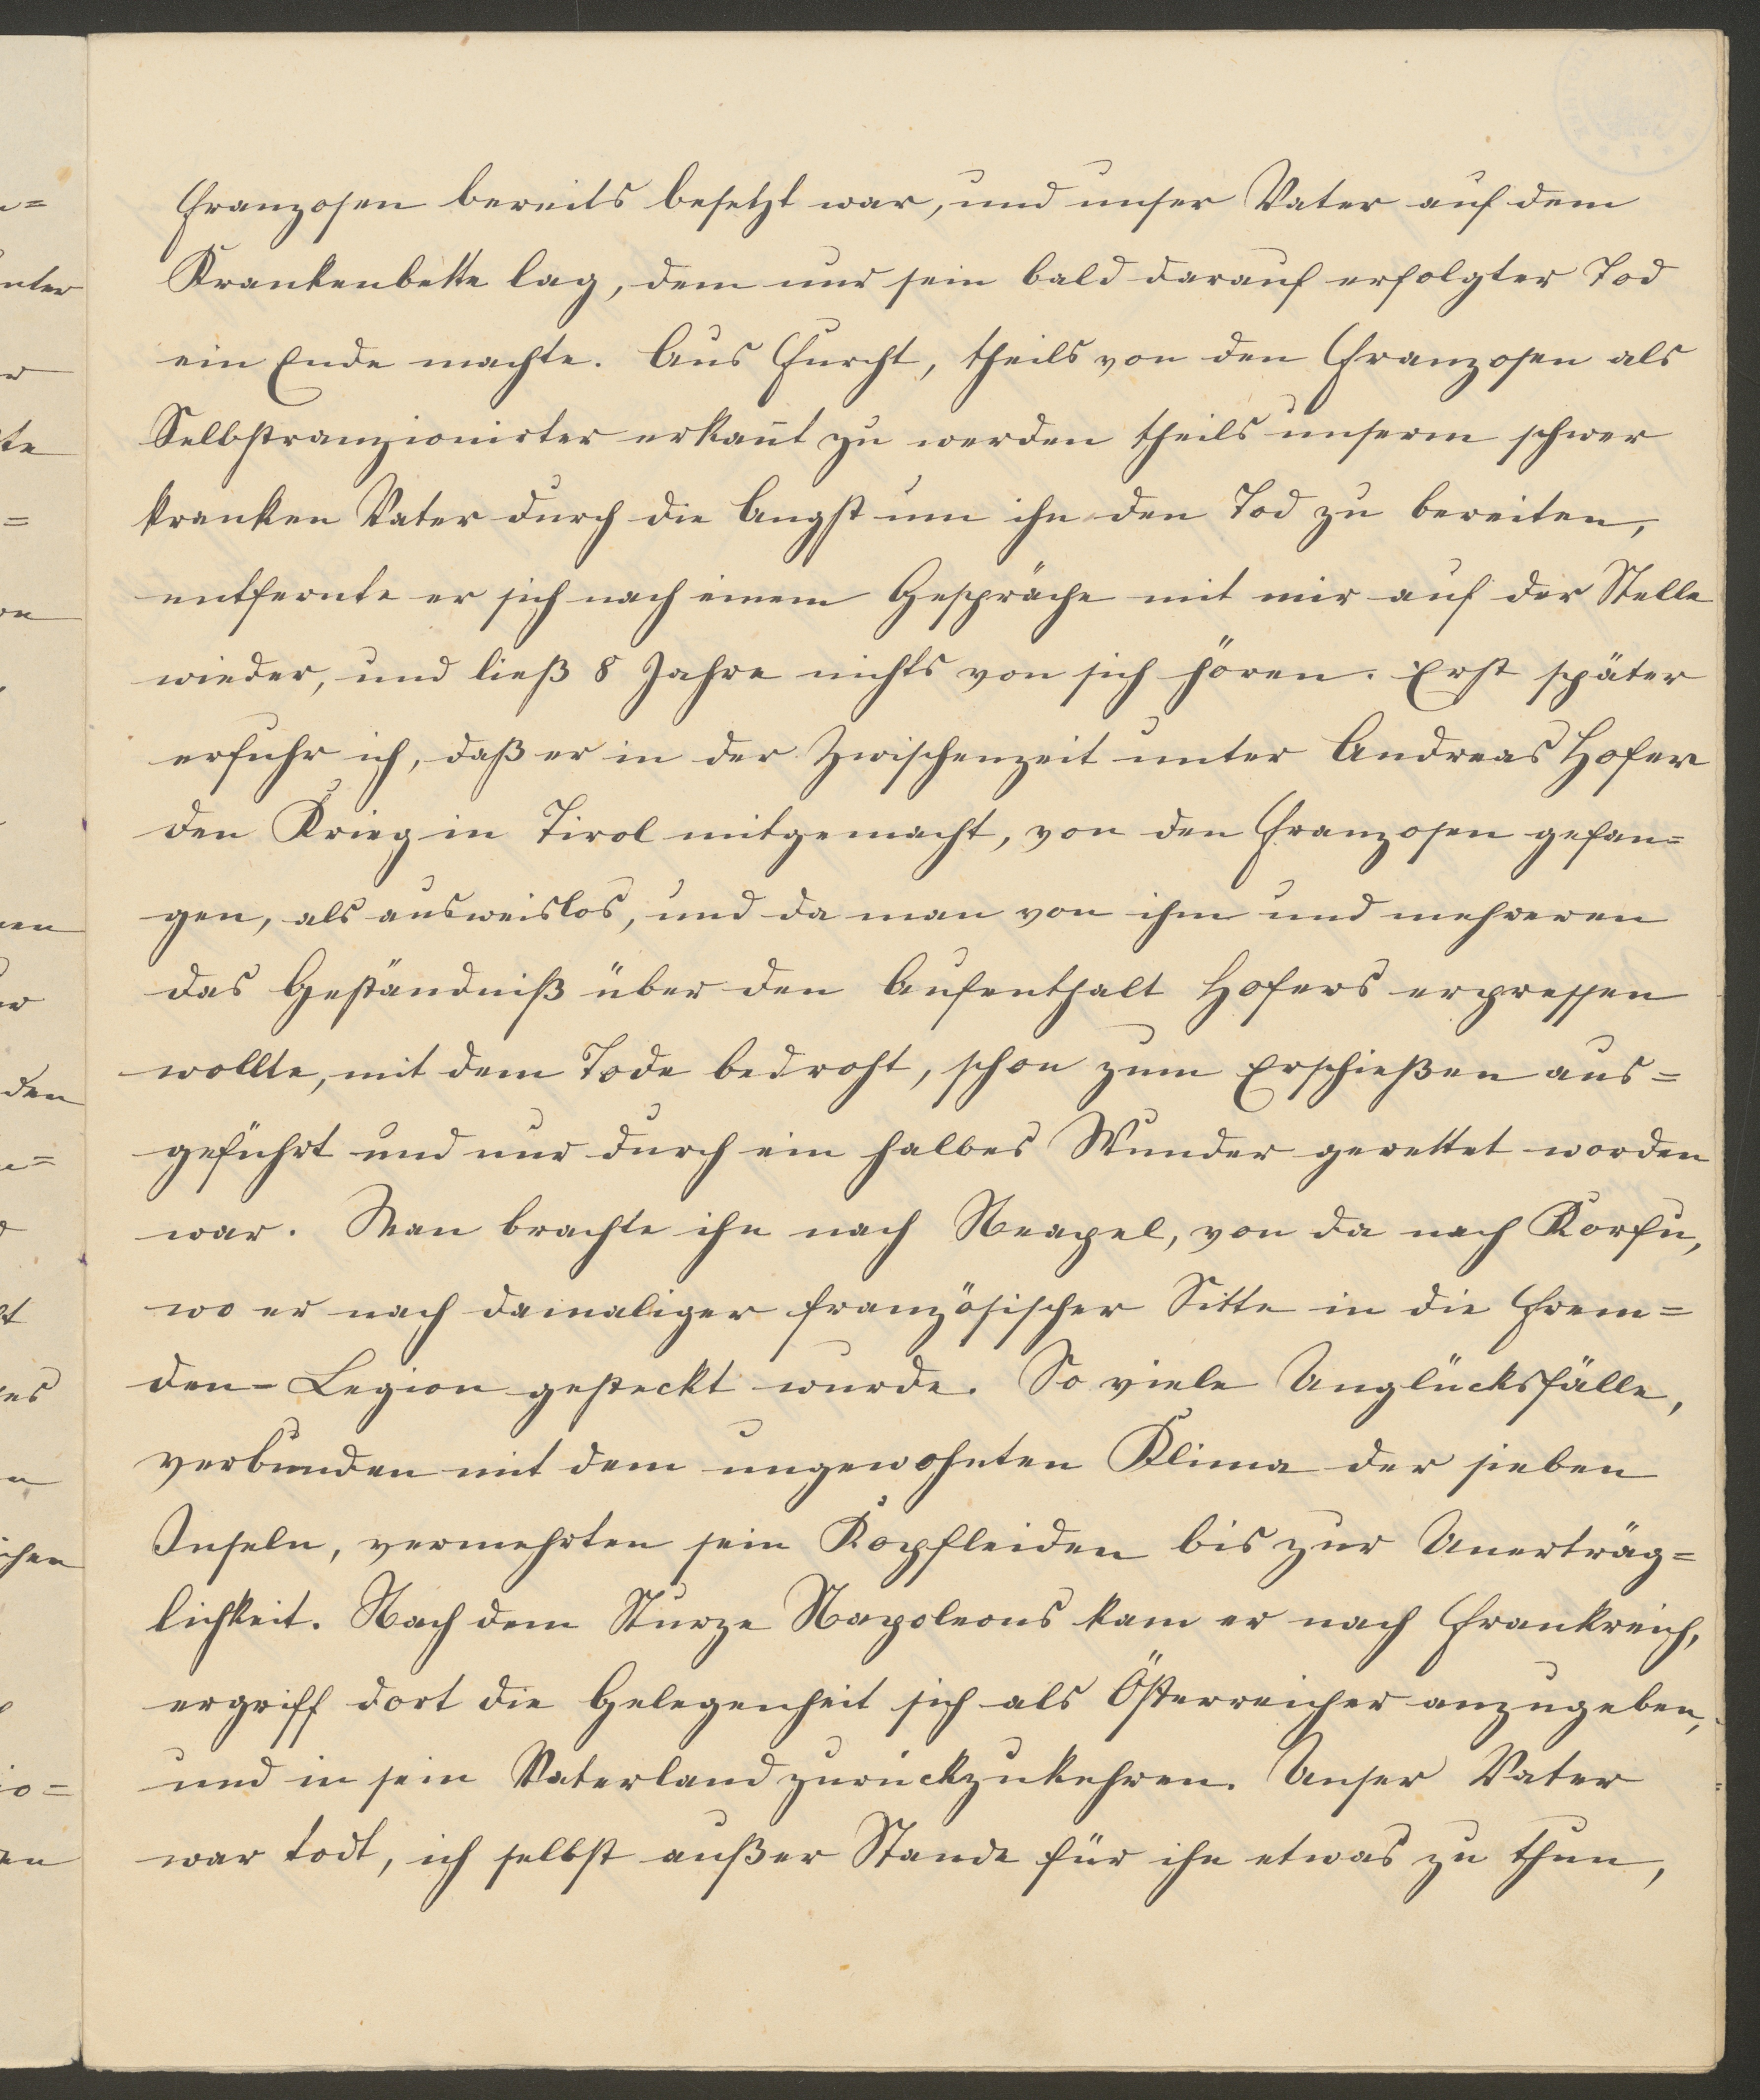 Franzosen bereits besetzt war, und unser Vater auf dem
Krankenbette lag, dem nur sein bald darauf erfolgter Tod
ein Ende machte. Aus Furcht, theils von den Franzosen als
Selbstranzionirter erkañt zu werden theils unserm schwer
kranken Vater durch die Angst um ihn den Tod zu bereiten,
entfernte er sich nach einem Gespräche mit mir auf der Stelle
wieder, und ließ 8 Jahre nichts von sich hören. Erst später
erfuhr ich, daß er in der Zwischenzeit unter Andreas Hofer
den Krieg in Tirol mitgemacht, von den Franzosen gefan=
gen, als ausweislos, und da man von ihm und mehreren
das Geständniß über den Aufenthalt Hofers erpressen
wollte, mit dem Tode bedroht, schon zum Erschießen aus=
geführt und nur durch ein halbes Wunder gerettet worden
war. Man brachte ihn nach Neapel, von da nach Korfu,
wo er nach damaliger französischer Sitte in die Frem=
den-Legion gesteckt wurde. So viele Unglücksfälle,
verbunden mit dem ungewohnten Klima der sieben
Inseln, vermehrten sein Kopfleiden bis zur Unerträg=
lichkeit. Nach dem Sturze Napoleons kam er nach Frankreich,
ergriff dort die Gelegenheit sich als Österreicher anzugeben,
und in sein Vaterland zurückzukehren. Unser Vater
war todt, ich selbst außer Stande für ihn etwas zu thun,